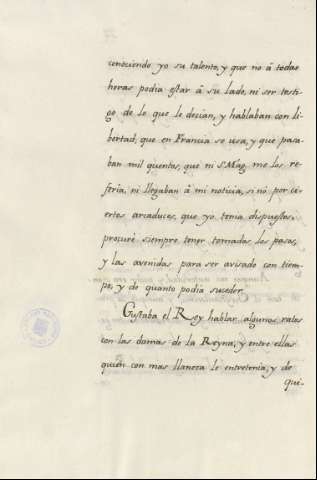 conociendo yo su talento, y que no â todas
horas podia estar â su lado, ni ser testi-
go de lo que le decian, y hablaban con li-
bertad, que en Francia se usa, y que pasa-
ban mil quentos, que ni S. Mag. me los re-
feria, ni llegaban â mi noticia, si nó por ci-
ertos arcaduces, que yo tenia dispuestos,
procuré siempre tener tomados los pasos,
y las avenidas para ser avisado con tiem-
po, y de quanto podia suceder.
Gustaba el Rey hablar algunos ratos
con las damas de la Reyna, y entre ellas
quien con mas llaneza le entretenia, y de
que-